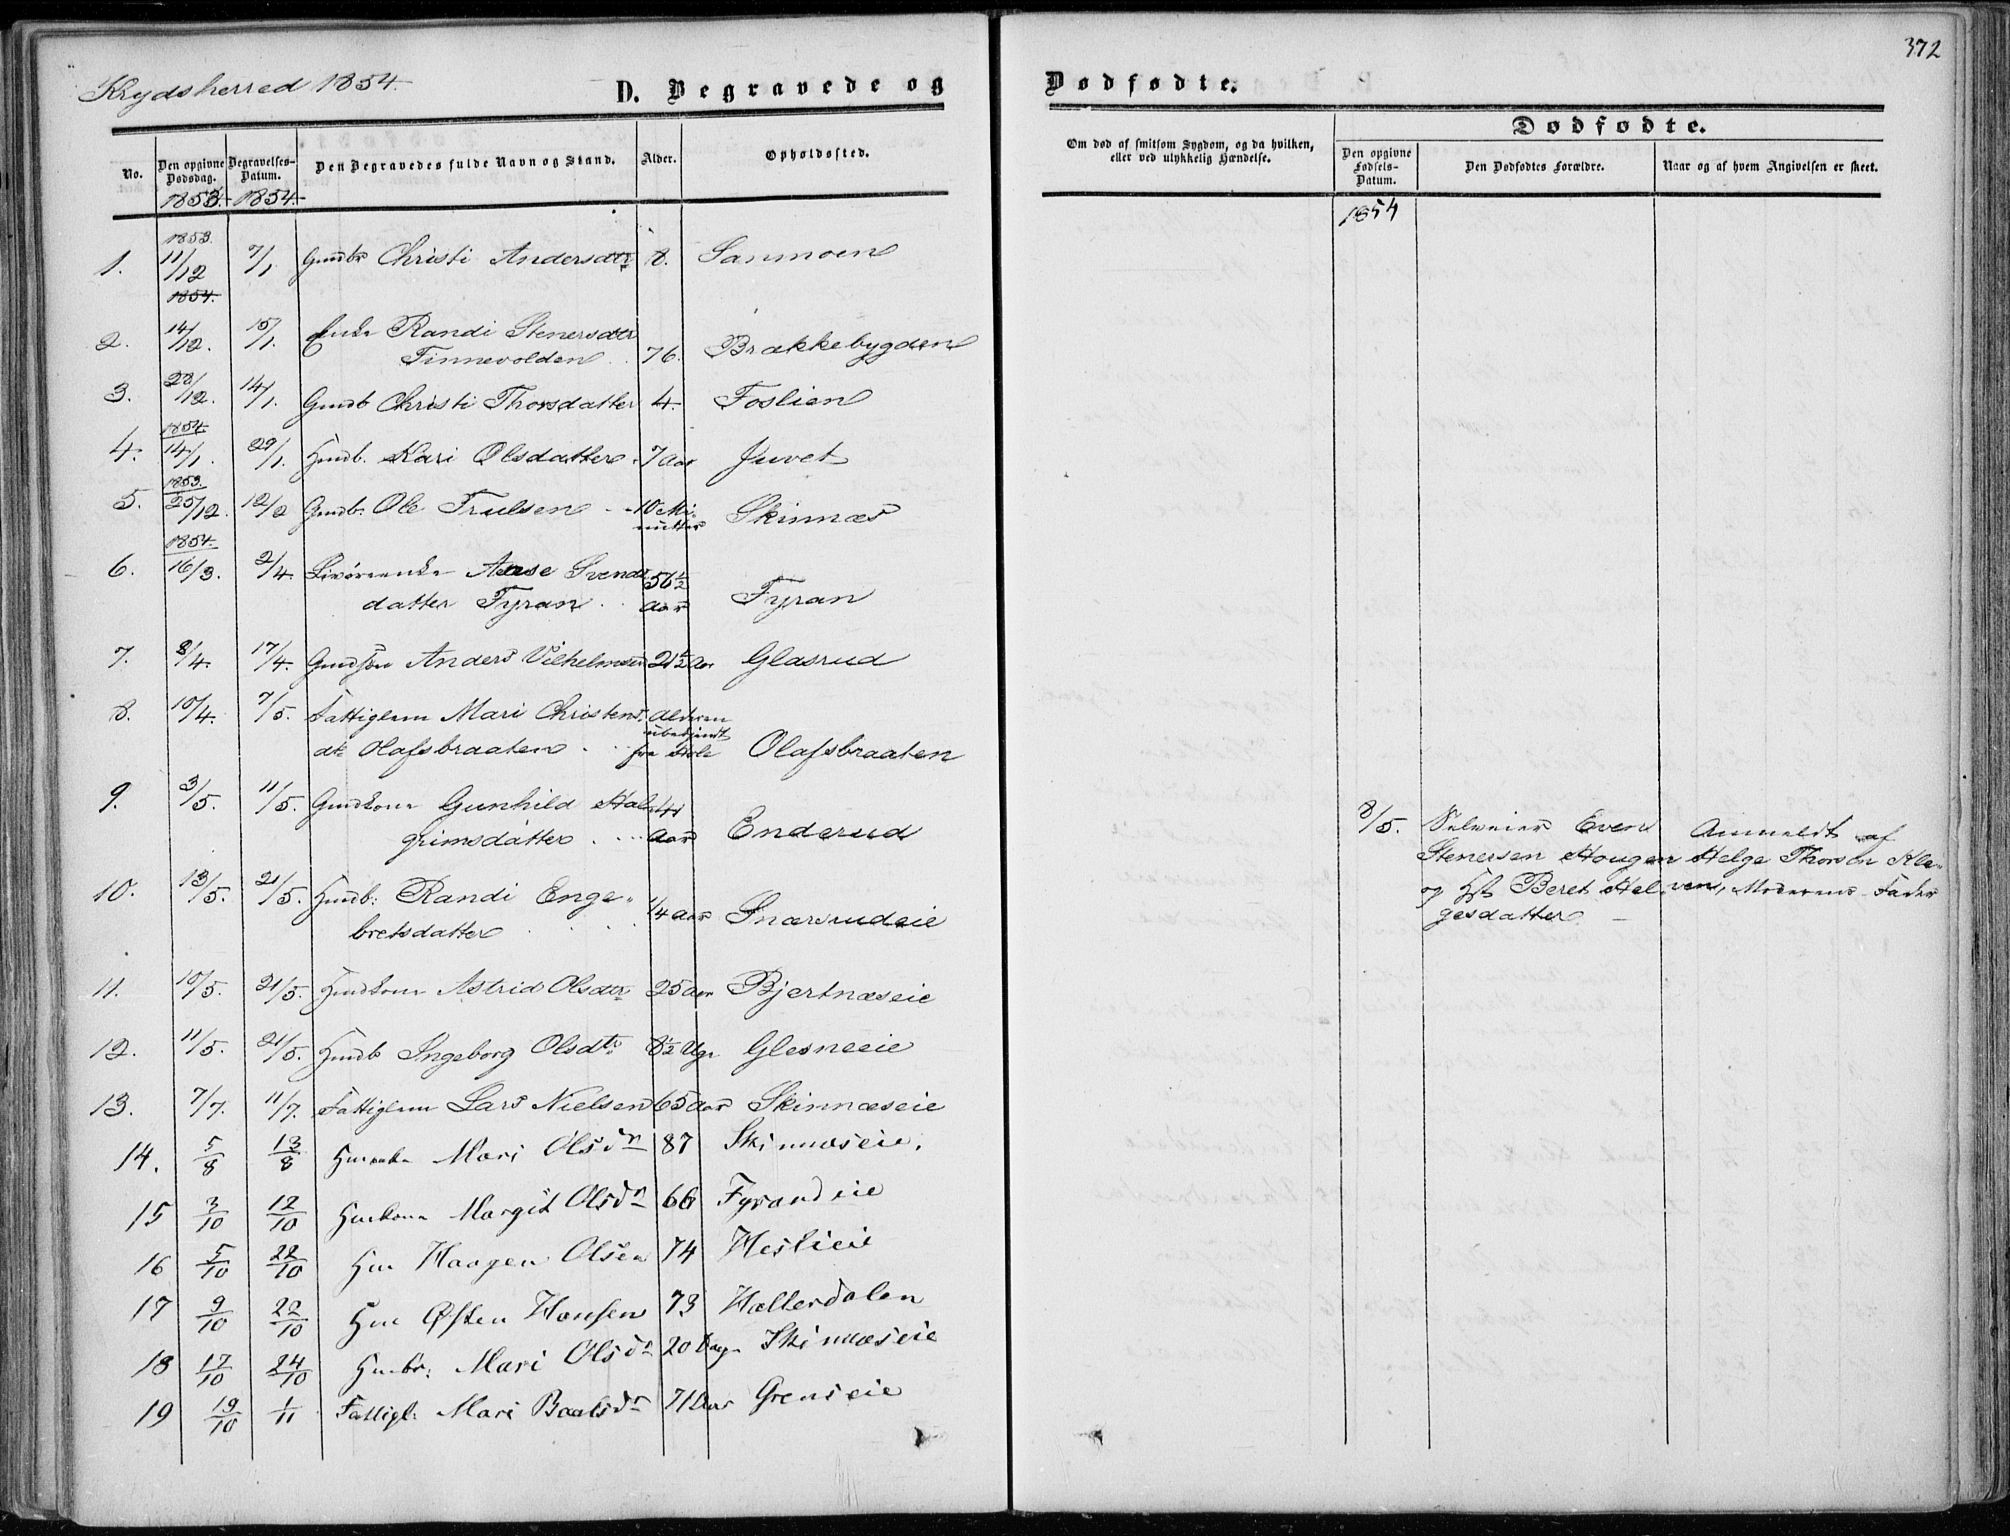 372
Krydsherred 1854.
D. Begravede og Dødfødte.
No. | Den opgivne Dødsdag. | Begravelses-Datum. | Den Begravedes fulde Navn og Stand. | Alder. | Opholdssted.
Om død af smitsom Sygdom, og da hvilken, eller ved ulykkelig Hændelse. | Dødfødte. | Den opgivne Fødsels-Datum. | Den Dødfødtes Forældre. | Naar og af hvem Angivelsen er skeet.
1853. 1854.
1854
1853.
1. 11/12 7/1. Gmdb Christi Andersdtr 8. Sanmoen
1854.
2. 14/12. 15/1. Enke Randi Stenersdtr
Finnevolden 76. Brækkebygden
3. 28/12. 14/1. Gmdb Christi Thorsdatter 4. Foslien
1854.
4. 14/1. 29/1. Hmdb. Kari Olsdatter 7 Aar Juvet
1853.
5. 25/12. 12/2 Gmdb. Ole Trulsen 10 Mi-
nutter Skinnæs
1854.
6. 16/3. 2/4. Livøreenke Aase Svends
datter Fyran 56 1/2 Aar Fyran
7. 8/4. 17/4. Gmdsøn Anders Vilhelmsen 21 1/2 Aar Glasrud
8. 10/4. 7/5. Fattiglem Mari Christens. Alderen
ubekjendt
dt Olafsbraaten Olafsbraaten
9. 3/5. 11/5. Gmdkone Gunhild Hal
grimsdatter 41 Aar Enderud
10. 13/5. 21/5. Hmdb: Randi Enge-
bretsdatter 1/4 Aar Snærsrudeie
11. 10/5. 21/5. Hmdkone Astrid Olsdtr 25 Aar Bjertnæseie
12. 11/5. 21/5. Hmdb Ingeborg Olsdtr 8 1/2 Uge Glesneeie
13. 7/7. 11/7. Fattiglem Lars Nielsen 65 Aar Skinnæseie
14. 5/8 13/8 Hmenke Mari Olsdr 87 Skinnæseie.
15 3/10 12/10 Hmkone Margit Olsdr 66 Fyrandeie
16 5/10 22/10 Hm Haagen Olsen 74 Heslieie
17 9/10 22/10 Hm Østen Hansen 73 Hallerdalen
18 17/10 24/10 Hmbr: Mari Olsdr 20 Dage Skinnæseie
19 19/10 1/11 Fattigl: Mari Baalsdr 71 Aar Grenseie
8/5. Selveier Even
Stenersen Hougen
og Hst Beret Hel-
gesdatter
Anmeldt af
Helge Thorsen Kle-
ven, Moderens Fader